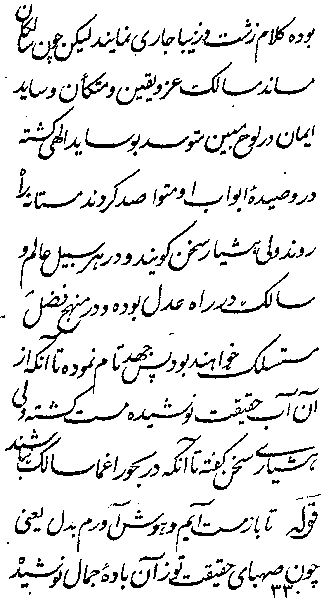 بوده کلام زشت و زیبا جاری نمایند لیکن چون سالکان
مسالک عز و یقین و متکأن وساید
ایمان در لوح مبین متوسد بوساید الهی گشته
در وصیدهٔ ابواب او متواصد کردند مستانه راه
روند ولی هشیار سخن گویند و در هر سبیل عالم و
سالک در راه عدل بوده و در منهج فضل
مستسلک خواهند بود پس جهد تام نموده تا آنکه از
آن آب حقیقت نوشیده مست گشته ولی
هشیاری سخن گفته تا آنکه در بحور اغما سالک باشند
قوله تا باز مست آیم و هوش آورم بدل یعنی
چون صهبای حقیقت تو ز آن بادهٔ جمال نوشید
۳۳